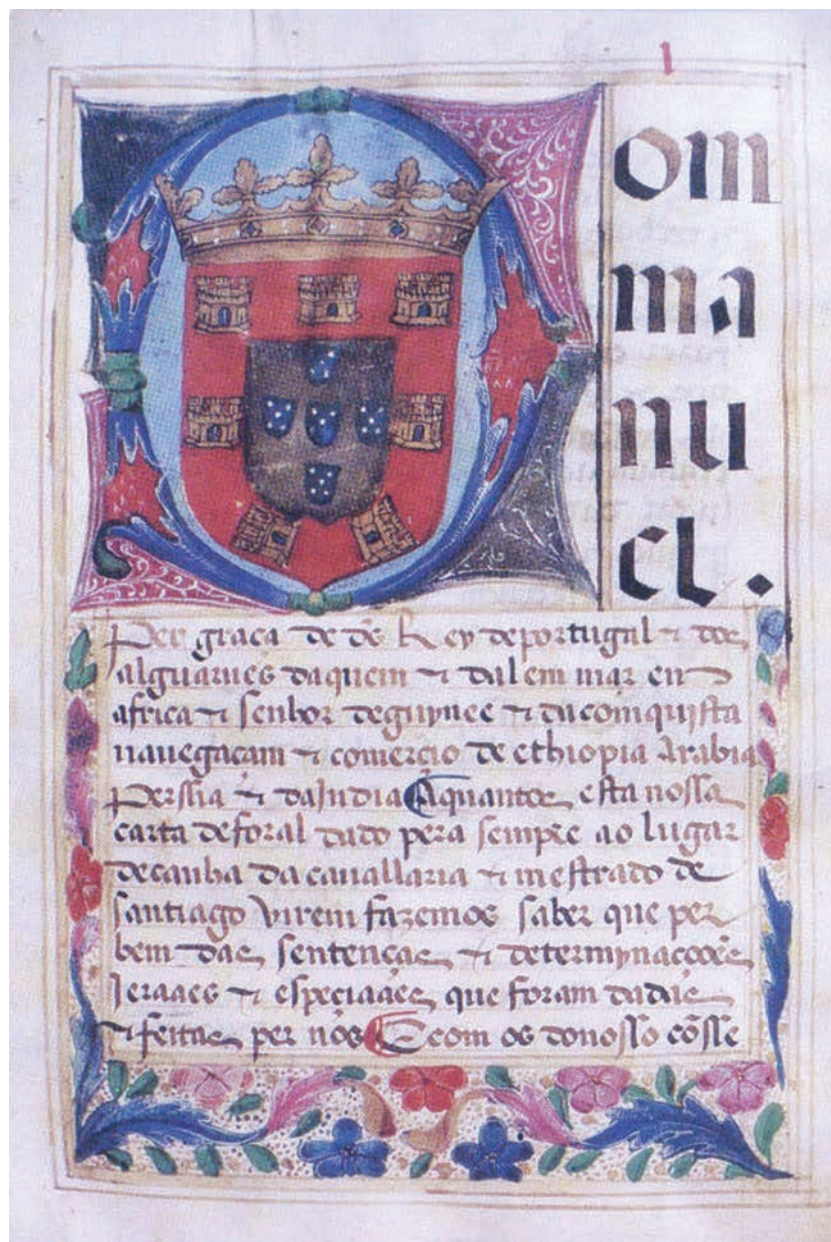 1
om
ma
nu
el.
Per graça de d̃s Rey de portugal ⁊ dos
alguarues daquem ⁊ dalem mar em
africa ⁊ senhor de guynee ⁊ da comquista
nauegaçam ⁊ comercio de ethiopia Arabia
Perssia ⁊ da India Aquantos esta nossa
carta de foral dado pera sempre ao lugar
de canha da cauallaria ⁊ mestrado de
santiago virem fazemos saber que per
bem das sentenças ⁊ determynaçoões
Jeraaes ⁊ especiaaes que foram dadas
⁊ feitas per nós E com os do nosso cõsse